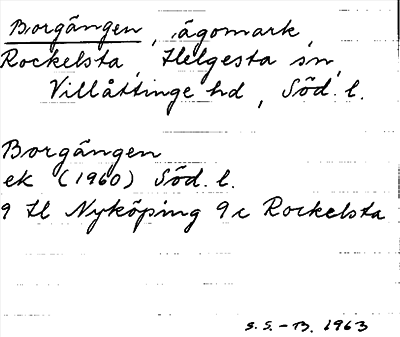 Borgängen, ägomark,
Rockelsta, Helgesta sn,
Villåttinge hd, Söd. l.
Borgängen
ek (1960) Söd. l.
9 H Nyköping 9 c Rockelsta
S.S.-B. 1963